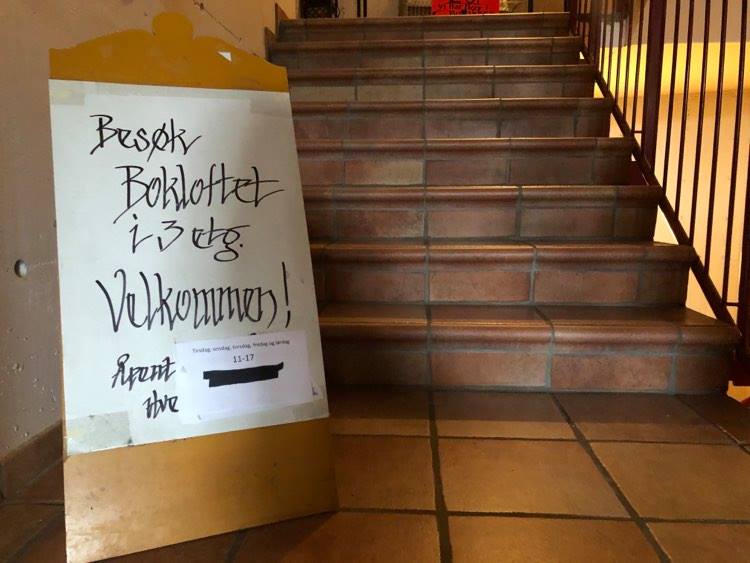 Besøk
Bokloftet
i 3 etg.
Velkommen!
Åpent
Tirsdag, onsdag, torsdag, fredag og lørdag
11-17